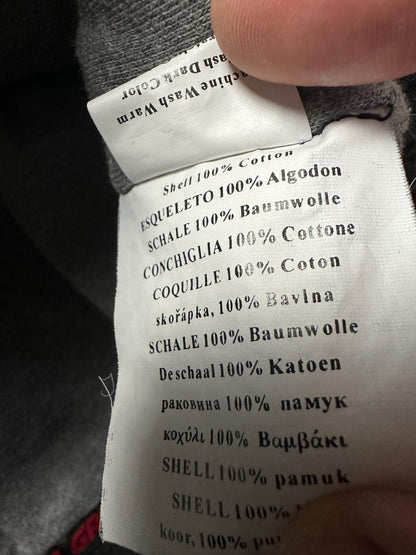 Machine Wash Warm
Wash Dark Color
Shell 100% Cotton
ESQUELETO 100% Algodon
SCHALE 100% Baumwolle
CONCHIGLIA 100% Cottone
COQUILLE 100% Coton
skořápka, 100% Bavlna
SCHALE 100% Baumwolle
De schaal 100% Katoen
раковина 100% памук
κοχύλι 100% Βαμβάκι
SHELL 100% pamuk
SHELL 100%
koor, 100%